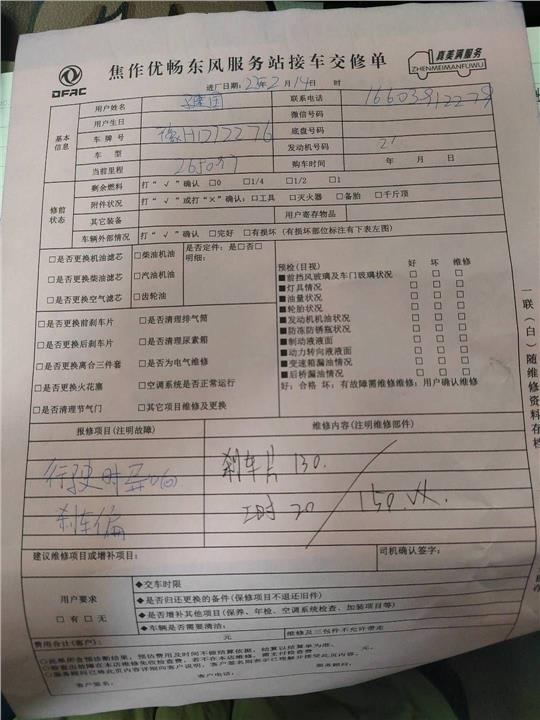 DFAC
焦作优畅东风服务站接车交修单
真美满服务
ZHENMEIMANFUWU
进厂日期：23年2月14日 时
基本信息
用户姓名 联系电话
用户生日 微信号码
车牌号 豫H1D7276 底盘号码
车型 发动机号码
当前里程 购车时间 年 月 日
修前状态
剩余燃料 打“√”确认 □0 □1/4 □1/2 □1
附件状况 打“√”或打“×”确认：□工具 □灭火器 □备胎 □千斤顶
其它装备 用户寄存物品
车辆外部情况 打“√”确认 □完好 □有损坏（有损坏部位标注有下表左图）
□是否更换机油滤芯 □柴油机油 是否定件：是□否□
明细：
□是否更换柴油滤芯 □汽油机油
□是否更换空气滤芯 □齿轮油
预检(目视) 好 坏 维修
■前挡风玻璃及车门玻璃状况 □ □ □
■灯具情况 □ □ □
■油量状况 □ □ □
■轮胎状况 □ □ □
■发动机机油状况 □ □ □
■防冻防锈瓶状况 □ □ □
■制动液液面 □ □ □
■动力转向液液面 □ □ □
■变速箱漏油情况 □ □ □
■后桥漏油情况 □ □ □
好：合格 坏：有故障需维修维修：用户确认维修
□是否更换前刹车片 □是否清理排气筒
□是否更换后刹车片 □是否清理尿素箱
□是否更换离合三件套 □是否为电气维修
□是否更换火花塞 □空调系统是否正常运行
□是否清理节气门 □其它项目维修及更换
一联（白）随维修资料存档
报修项目(注明故障) 维修内容(注明维修部件)
行驶时 刹车片 130.
刹车偏 工时 20 150.
建议维修项目或增补项目： 司机确认签字：
用户要求
□有□无
◆交车时限
◆是否归还更换的备件(保修项目不退还旧件)
◆是否增补其他项目(保养、年检、空调系统检查、加装项目等)
◆车辆是否需要清洁： 维修及三包件不允许带走
费用合计(客户)： 元
客户签名： 客户电话： 服务顾问：